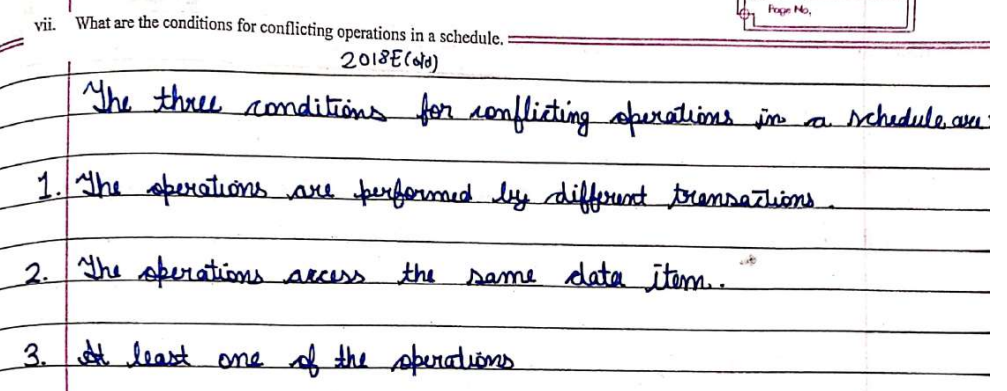 Page No.
vii. What are the conditions for conflicting operations in a schedule.
2018E(old)
The three conditions for conflicting operations in a schedule are:
1. The operations are performed by different transactions.
2. The operations access the same data item.
3. At least one of the operations